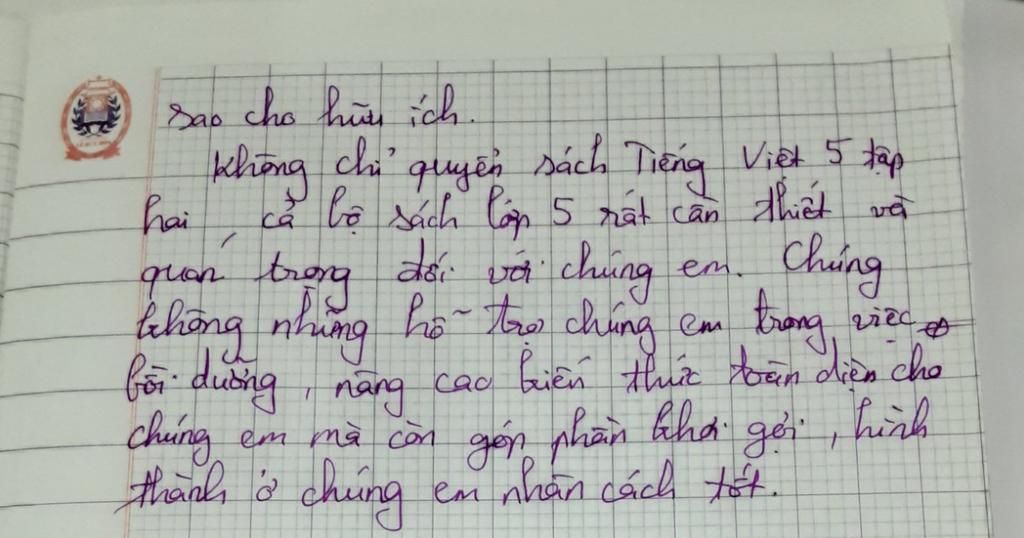 sao cho hữu ích.
Không chỉ quyển sách Tiếng Việt 5 tập
hai, cả bộ sách lớp 5 rất cần thiết và
quan trọng đối với chúng em. Chúng
không những hỗ trợ chúng em trong việc
bồi dưỡng, nâng cao kiến thức toàn diện cho
chúng em mà còn góp phần khơi gợi, hình
thành ở chúng em nhân cách tốt.